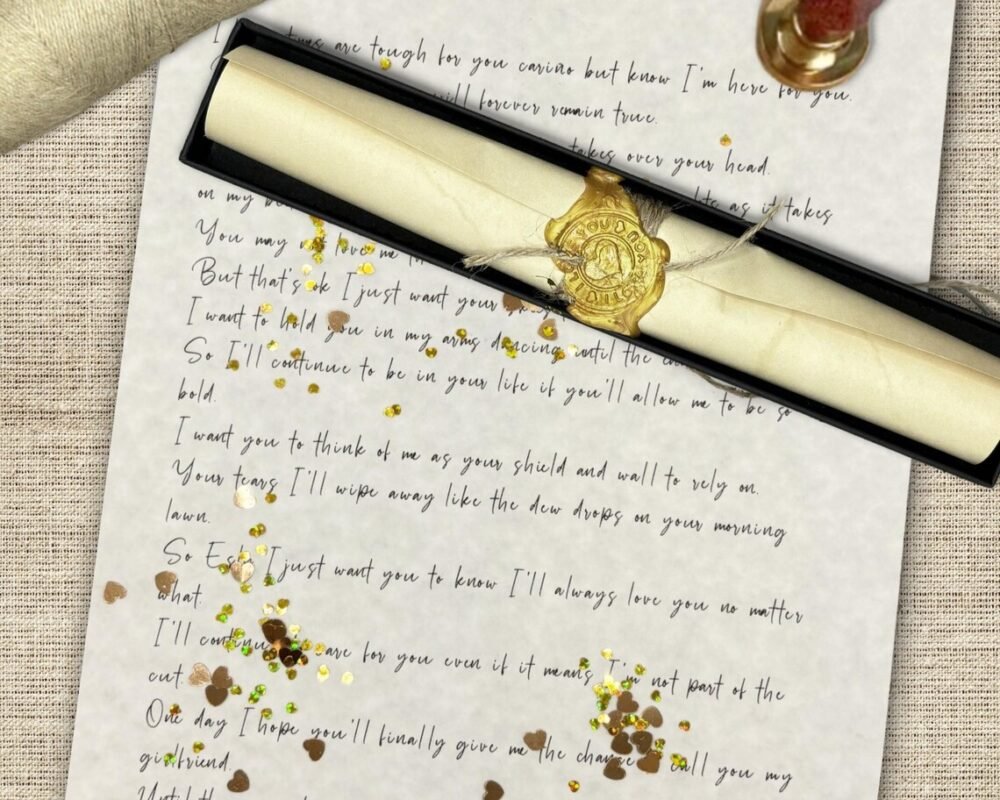 are tough for you cariño but know I'm here for you.
will forever remain true.
takes over your head.
as it takes
on my
You may not love me
But that's ok I just want your
I want to hold you in my arms dancing until the
So I'll continue to be in your life if you'll allow me to be so
bold.
I want you to think of me as your shield and wall to rely on.
Your tears I'll wipe away like the dew drops on your morning
lawn.
So I just want you to know I'll always love you no matter
what.
I'll continue care for you even if it means I'm not part of the
cut.
One day I hope you'll finally give me the chance call you my
girlfriend.
Until